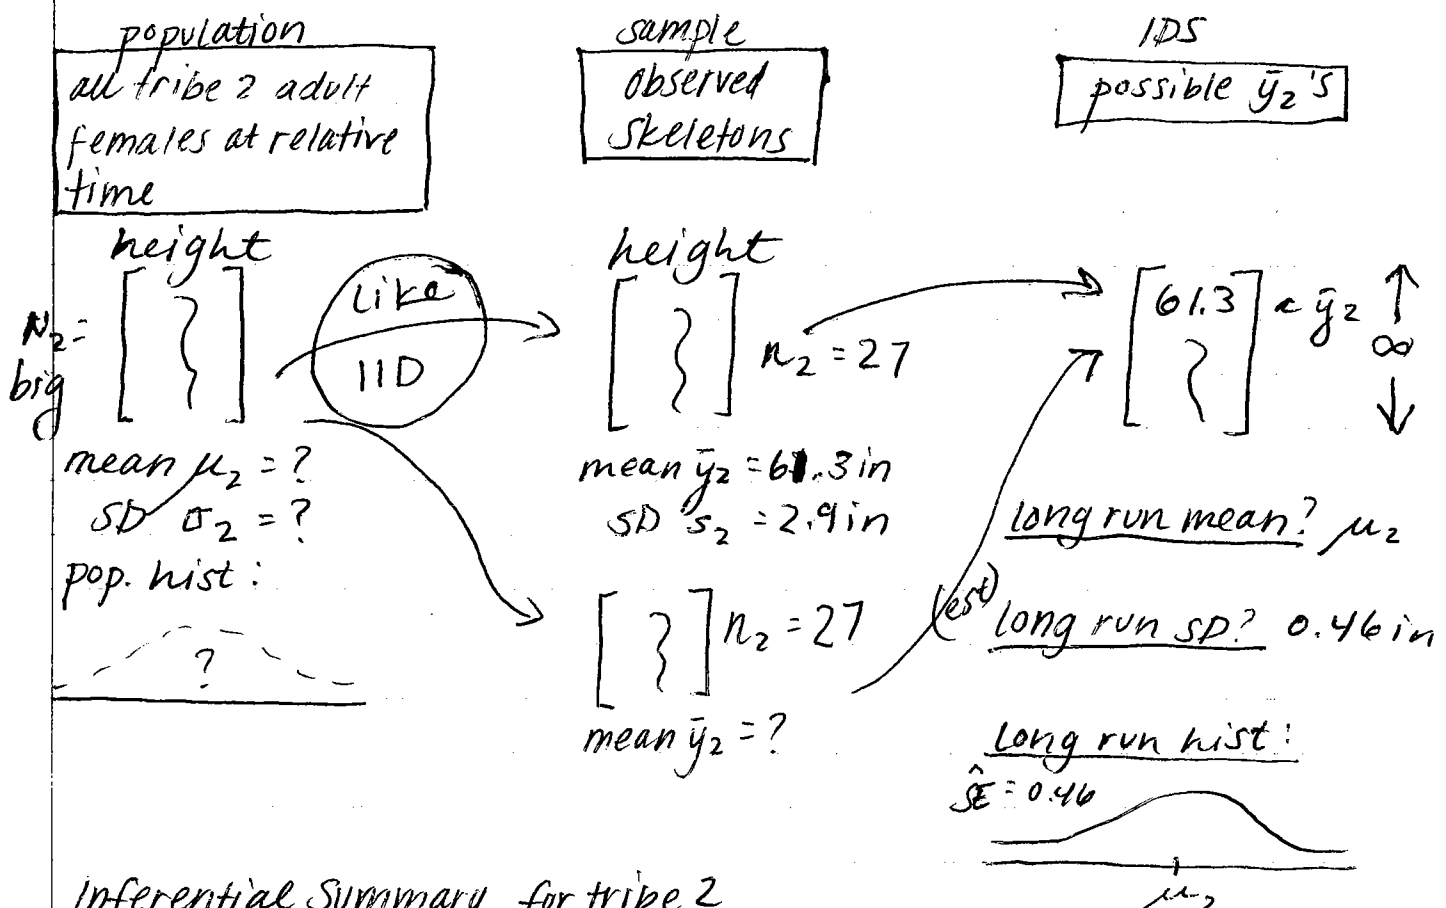 population
all tribe 2 adult
females at relative
time
height
N₂ =
big
[ ]
mean μ₂ = ?
SD σ₂ = ?
pop. hist :
?
Like
IID
sample
observed
skeletons
height
[ ] n₂ = 27
mean ȳ₂ = 61.3 in
SD s₂ = 2.9 in
[ ] n₂ = 27
mean ȳ₂ = ?
IDS
possible ȳ₂'s
[ 61.3 ] ȳ₂ ↑
∞
↓
long run mean? μ₂
(est) long run SD? 0.46 in
Long run hist :
ŜE = 0.46
μ₂
Inferential Summary for tribe 2